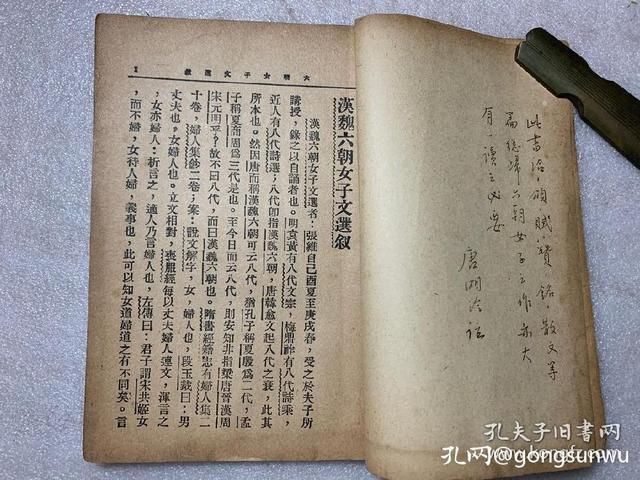 此書詔頌賦贊銘散文等
篇總歸六朝女子之作亦大
有一讀之必要
唐
漢魏六朝女子文選叙
漢魏六朝女子文選者：張維自己酉夏至庚戌春，受之於夫子所
講授，錄之以自誦者也。明袁黃有八代文宗，梅鼎祚有八代詩乘，
近人有八代詩選；八代即指漢魏六朝，唐韓愈文起八代之衰，此其
所本也。然因唐而稱漢魏六朝可云八代，猶孔子稱夏殷爲二代，孟
子稱夏商周爲三代是也。至今日而云八代，則安知非指梁唐晉漢周
宋元明乎？故不曰八代，而曰漢魏六朝也。隋書經籍志有婦人集二
十卷，婦人集鈔二卷；案：說文解字，女，婦人也，段玉裁曰：男
丈夫也。女婦人也。立文相對，喪服經每以丈夫婦人連文，渾言之
，女亦婦人；析言之，適人乃言婦人也，左傳曰：君子謂宋共姬女
，而不婦，女待人婦，義事也，此可以知女道婦道之有不同矣。言
六朝女子文選叙
1
孔夫子旧书网
孔网@gongsunwu